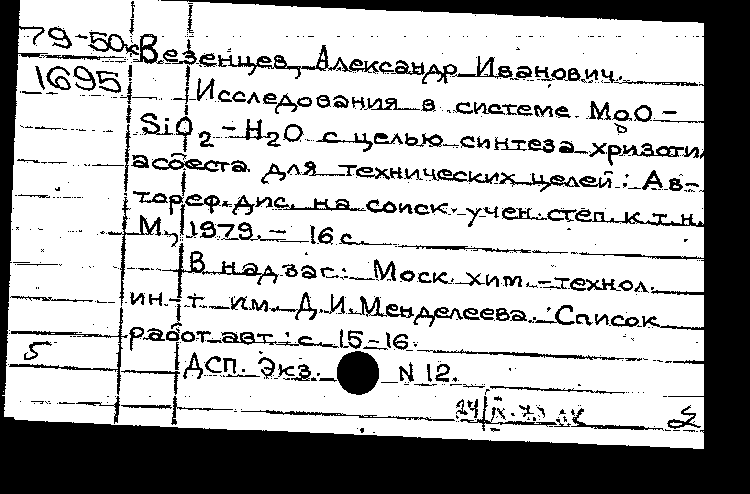 79-50к
1695
Везенцев, Александр Иванович.
Исследования в системе MgO -
SiO2 - H2O с целью синтеза хризотил
асбеста для технических целей: Ав-
тореф. дис. на соиск. учен. степ. к.т.н.
М., 1979. - 16 с.
В надзаг: Моск. хим.-технол.
ин-т им. Д.И.Менделеева. Список
работ авт: с. 15-16.
5
ДСП. Экз. N 12.